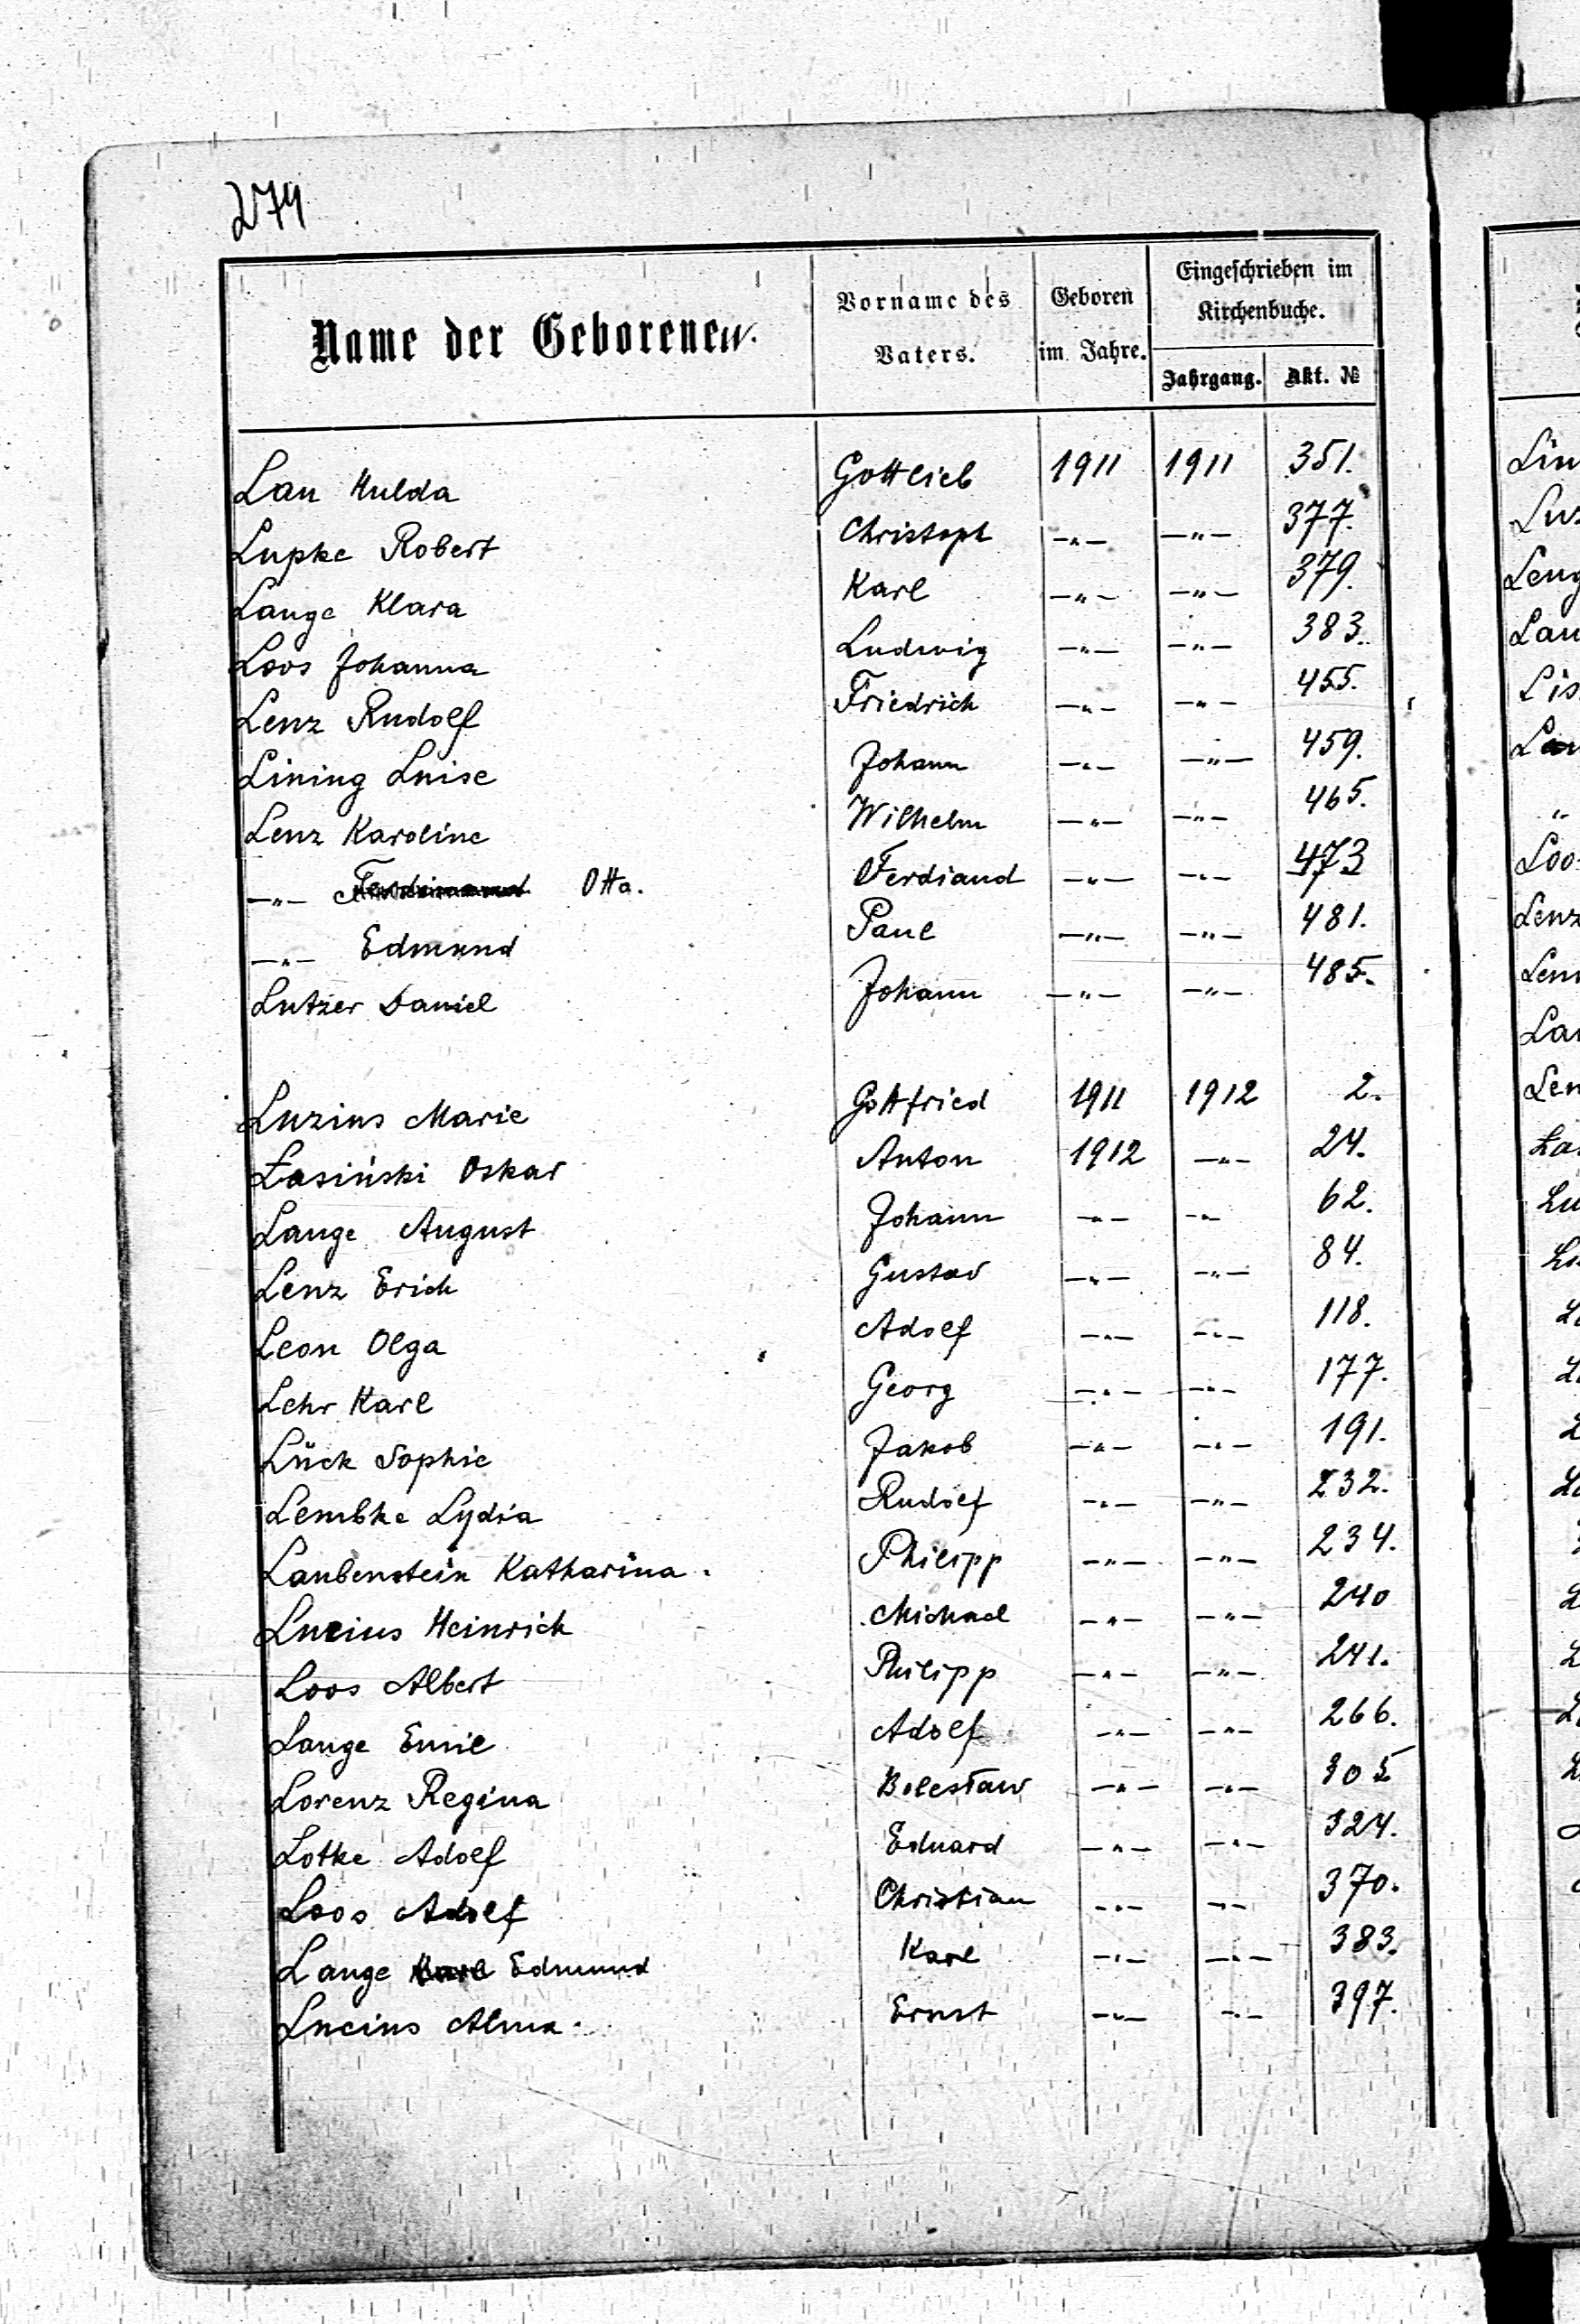 274
Name der Geborenen.
Vorname des Vaters.
Geboren im Jahre.
Eingeschrieben im Kirchenbuche.
Jahrgang. Akt. №
Lau Hulda Gottlieb 1911 1911 351.
Lupke Robert Christoph -"- -"- 377.
Lange Klara Karl -"- -"- 379.
Loos Johanna Ludwig -"- -"- 383.
Lenz Rudolf Friedrich -"- -"- 455.
Lining Luise Johann -"- -"- 459.
Lenz Karoline Wilhelm -"- -"- 465.
-"- Otto. Ferdiand -"- -"- 473
-"- Edmund Paul -"- -"- 481.
Lutzer Daniel Johann -"- -"- 485.
Luzius Marie Gottfried 1911 1912 2.
Łasiński Oskar Anton 1912 -"- 24.
Lange August Johann -"- -"- 62.
Lenz Erich Gustav -"- -"- 84.
Leon Olga Adolf -"- -"- 118.
Lehr Karl Georg -"- -"- 177.
Lück Sophie Jakob -"- -"- 191.
Lembke Lydia Rudolf -"- -"- 232.
Laubenstein Katharina. Philipp -"- -"- 234.
Lucius Heinrich Michael -"- -"- 240
Loos Albert Philipp -"- -"- 241.
Lange Emil Adolf -"- -"- 266.
Lorenz Regina Bolesław -"- -"- 305
Lotke Adolf Eduard -"- -"- 324.
Loos Adolf Christian -"- -"- 370.
Lange Karl Edmund Karl -"- -"- 383.
Lucius Alma. Ernst -"- -"- 397.